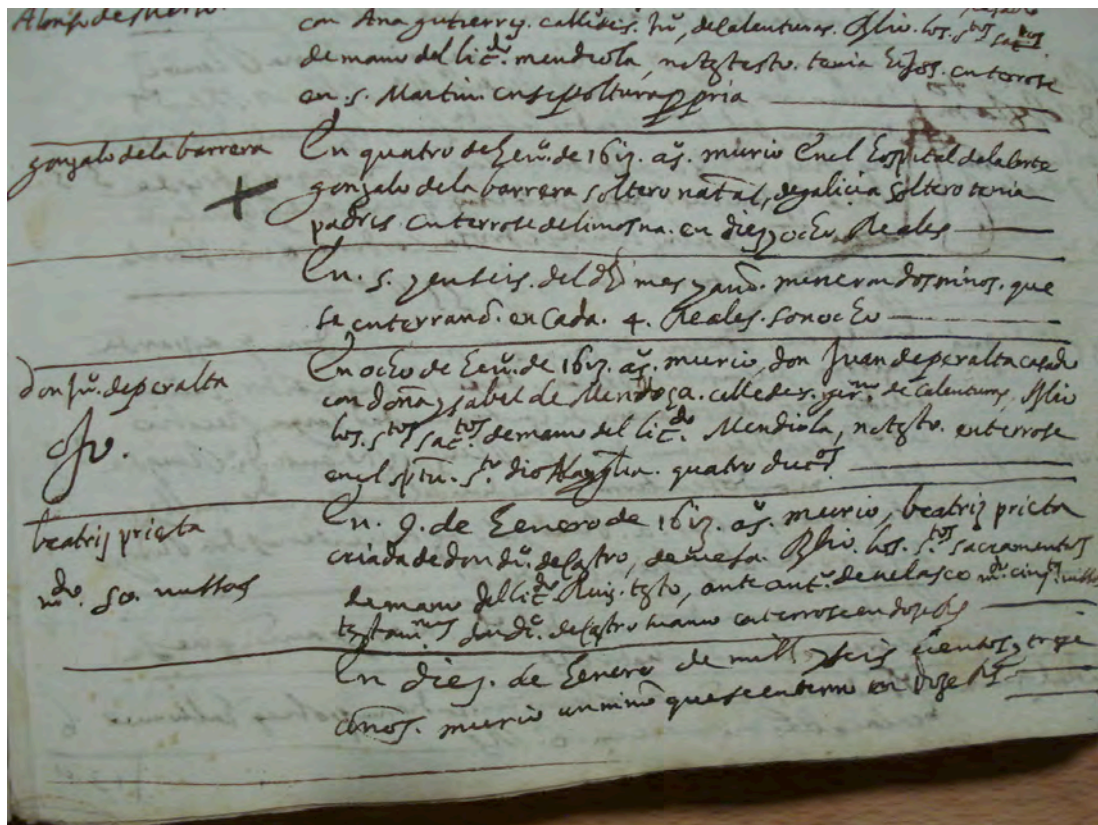 Alonso de
con Ana gutierrez. calle de s. Ju, de calenturas. Rio. los. stos sactos
de mano del licdo. mendiola, no tzto. tenia hijos. enterrose
en. s. Martin. en sepoltura ppria
gonzalo dela barrera
En quatro de heno. de 1613. as. murio en el hospital dela corte
gonzalo dela barrera soltero natal, de galicia soltero tenia
padres enterrose de limosna. en diez y ocho Reales
En. 5. y en seis. del dho mes y año. murieron dos niños. que
se enterraron. en cada. 4. Reales. son ocho
don Ju. de peralta
En ocho de heno. de 1613. as. murio, don Juan de peralta casado
con doña ysabel de Mendoza. calle de s. germo. de calenturas, Rio
los. stos sactos. de mano del licdo. Mendiola, no tzto. enterrose
en el quatro ducos
beatriz prieta
En. 9. de henero de 1613. as. murio, beatriz prieta
criada de don du. de castro, Rio. los. stos. sacramentos
de mano del licdo. Ruiz. tzto, ante anto. de velasco
mdo. 50. missas
don du. de castro enterrose en doze Rs
En diez. de Enero de mill y seis cientos y treze
años. murio un niño que se enterro en doze Rs